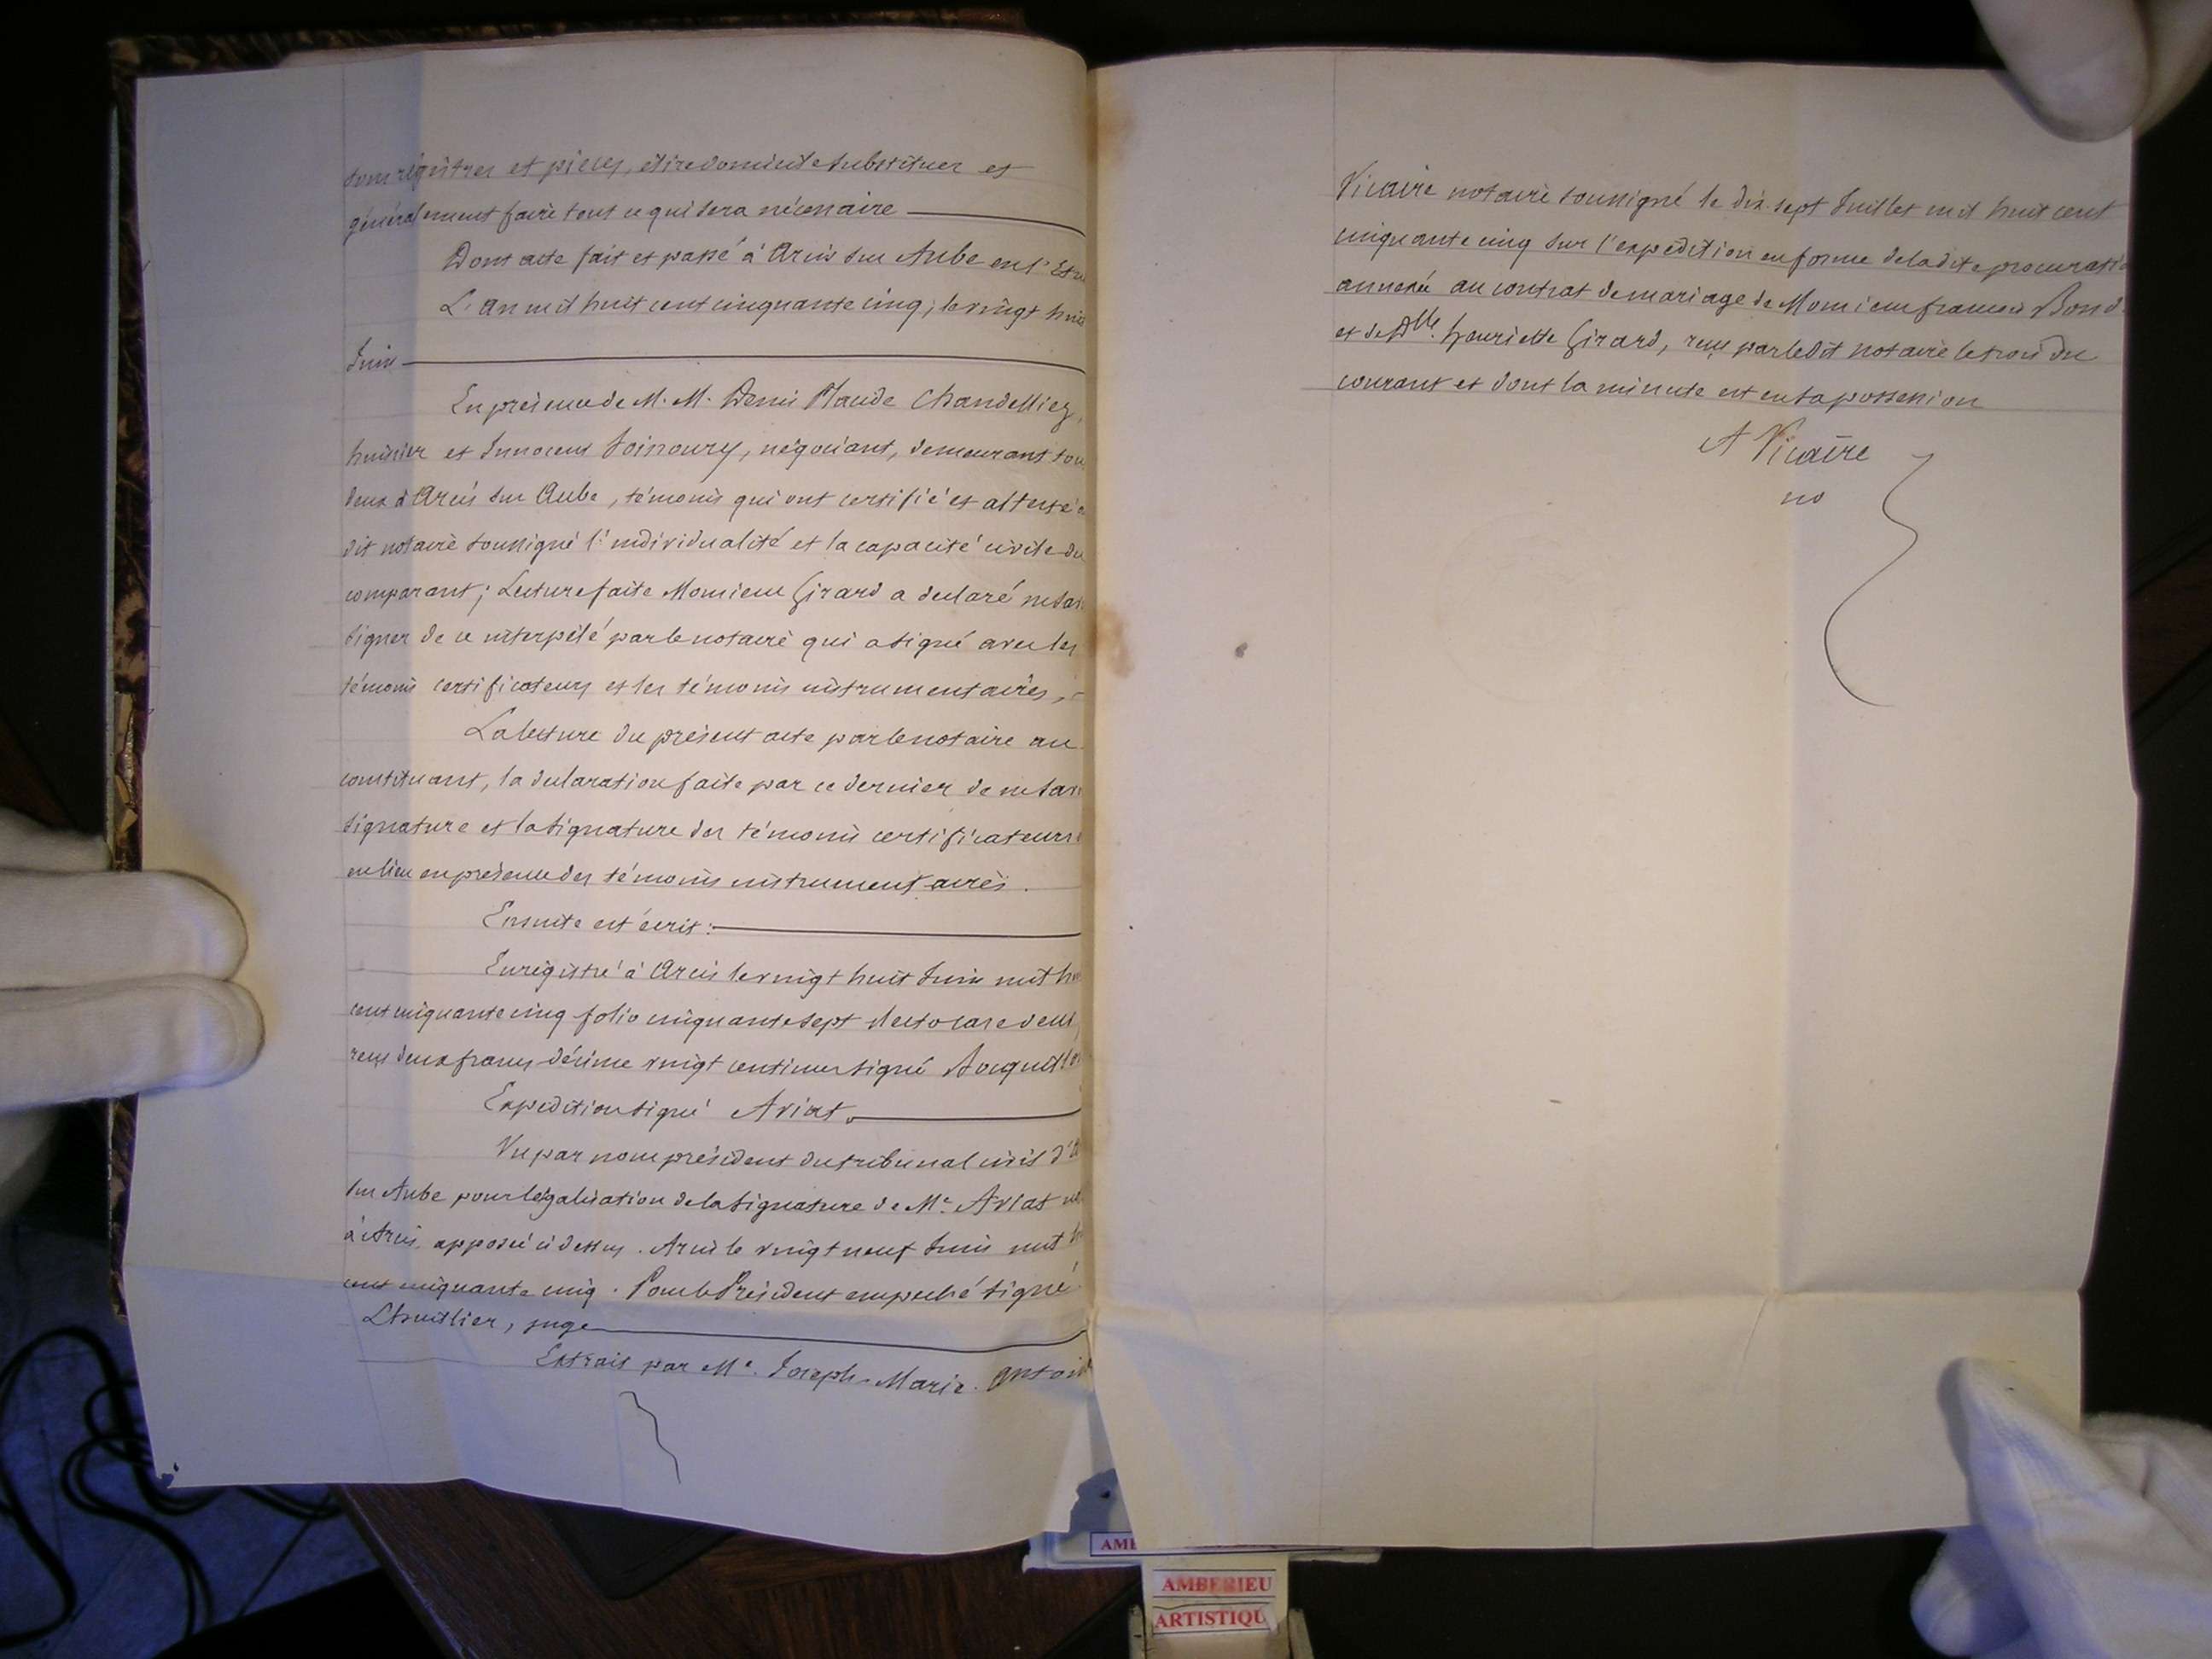 tous régistres et pièces, élire domicile substituer et
généralement faire tout ce qui sera nécessaire
Dont acte fait et passé à Arcis sur Aube en l'Etu
L'an mil huit cent cinquante cinq, le vingt huit
Juin
En présence de M.M. Denis Claude Chandelliez,
huissier et Innocent Soinoury, négociant, demeurant tous
deux à Arcis sur Aube, témoins qui ont certifié et attesté a
dit notaire soussigné l'individualité et la capacité civile du
comparant; Lecture faite Monsieur Girard a déclaré ne savo
signer de ce interpélé par le notaire qui a signé avec les
témoins certificateurs et les témoins instrumentaires,
La lecture du présent acte par le notaire au
constituant, la déclaration faite par ce dernier de ne savo
signature et la signature des témoins certificateurs
eu lieu en présence des témoins instrumentaires.
Ensuite est écrit:
Enrégistré à Arcis le vingt huit Juin mil hui
cent cinquante cinq folio cinquante sept Recto case deux,
reçu deux francs décime vingt centimes signé
Expédition signé Aviat.
Vu par nous président du tribunal civil d'A
sur Aube pour légalisation de la signature de Me Aviat no
à Arcis, apposée ci dessus. Arcis le vingt neuf Juin mil h
cent cinquante cinq. Pour le Président empeché signé
Lhuillier, juge
Extrait par Me. Joseph-Marie. Antoin
Vicaire notaire soussigné le dix sept Juillet mil huit cent
cinquante cinq sur l'expédition en forme de la dite procuratio
annexée au contrat de mariage de Monsieur francois Bond
et de Dlle. henriette Girard, reçu par ledit notaire le trois du
courant et dont la minute est en sa possession
A Vicaire
no
AMBERIEU
ARTISTIQU